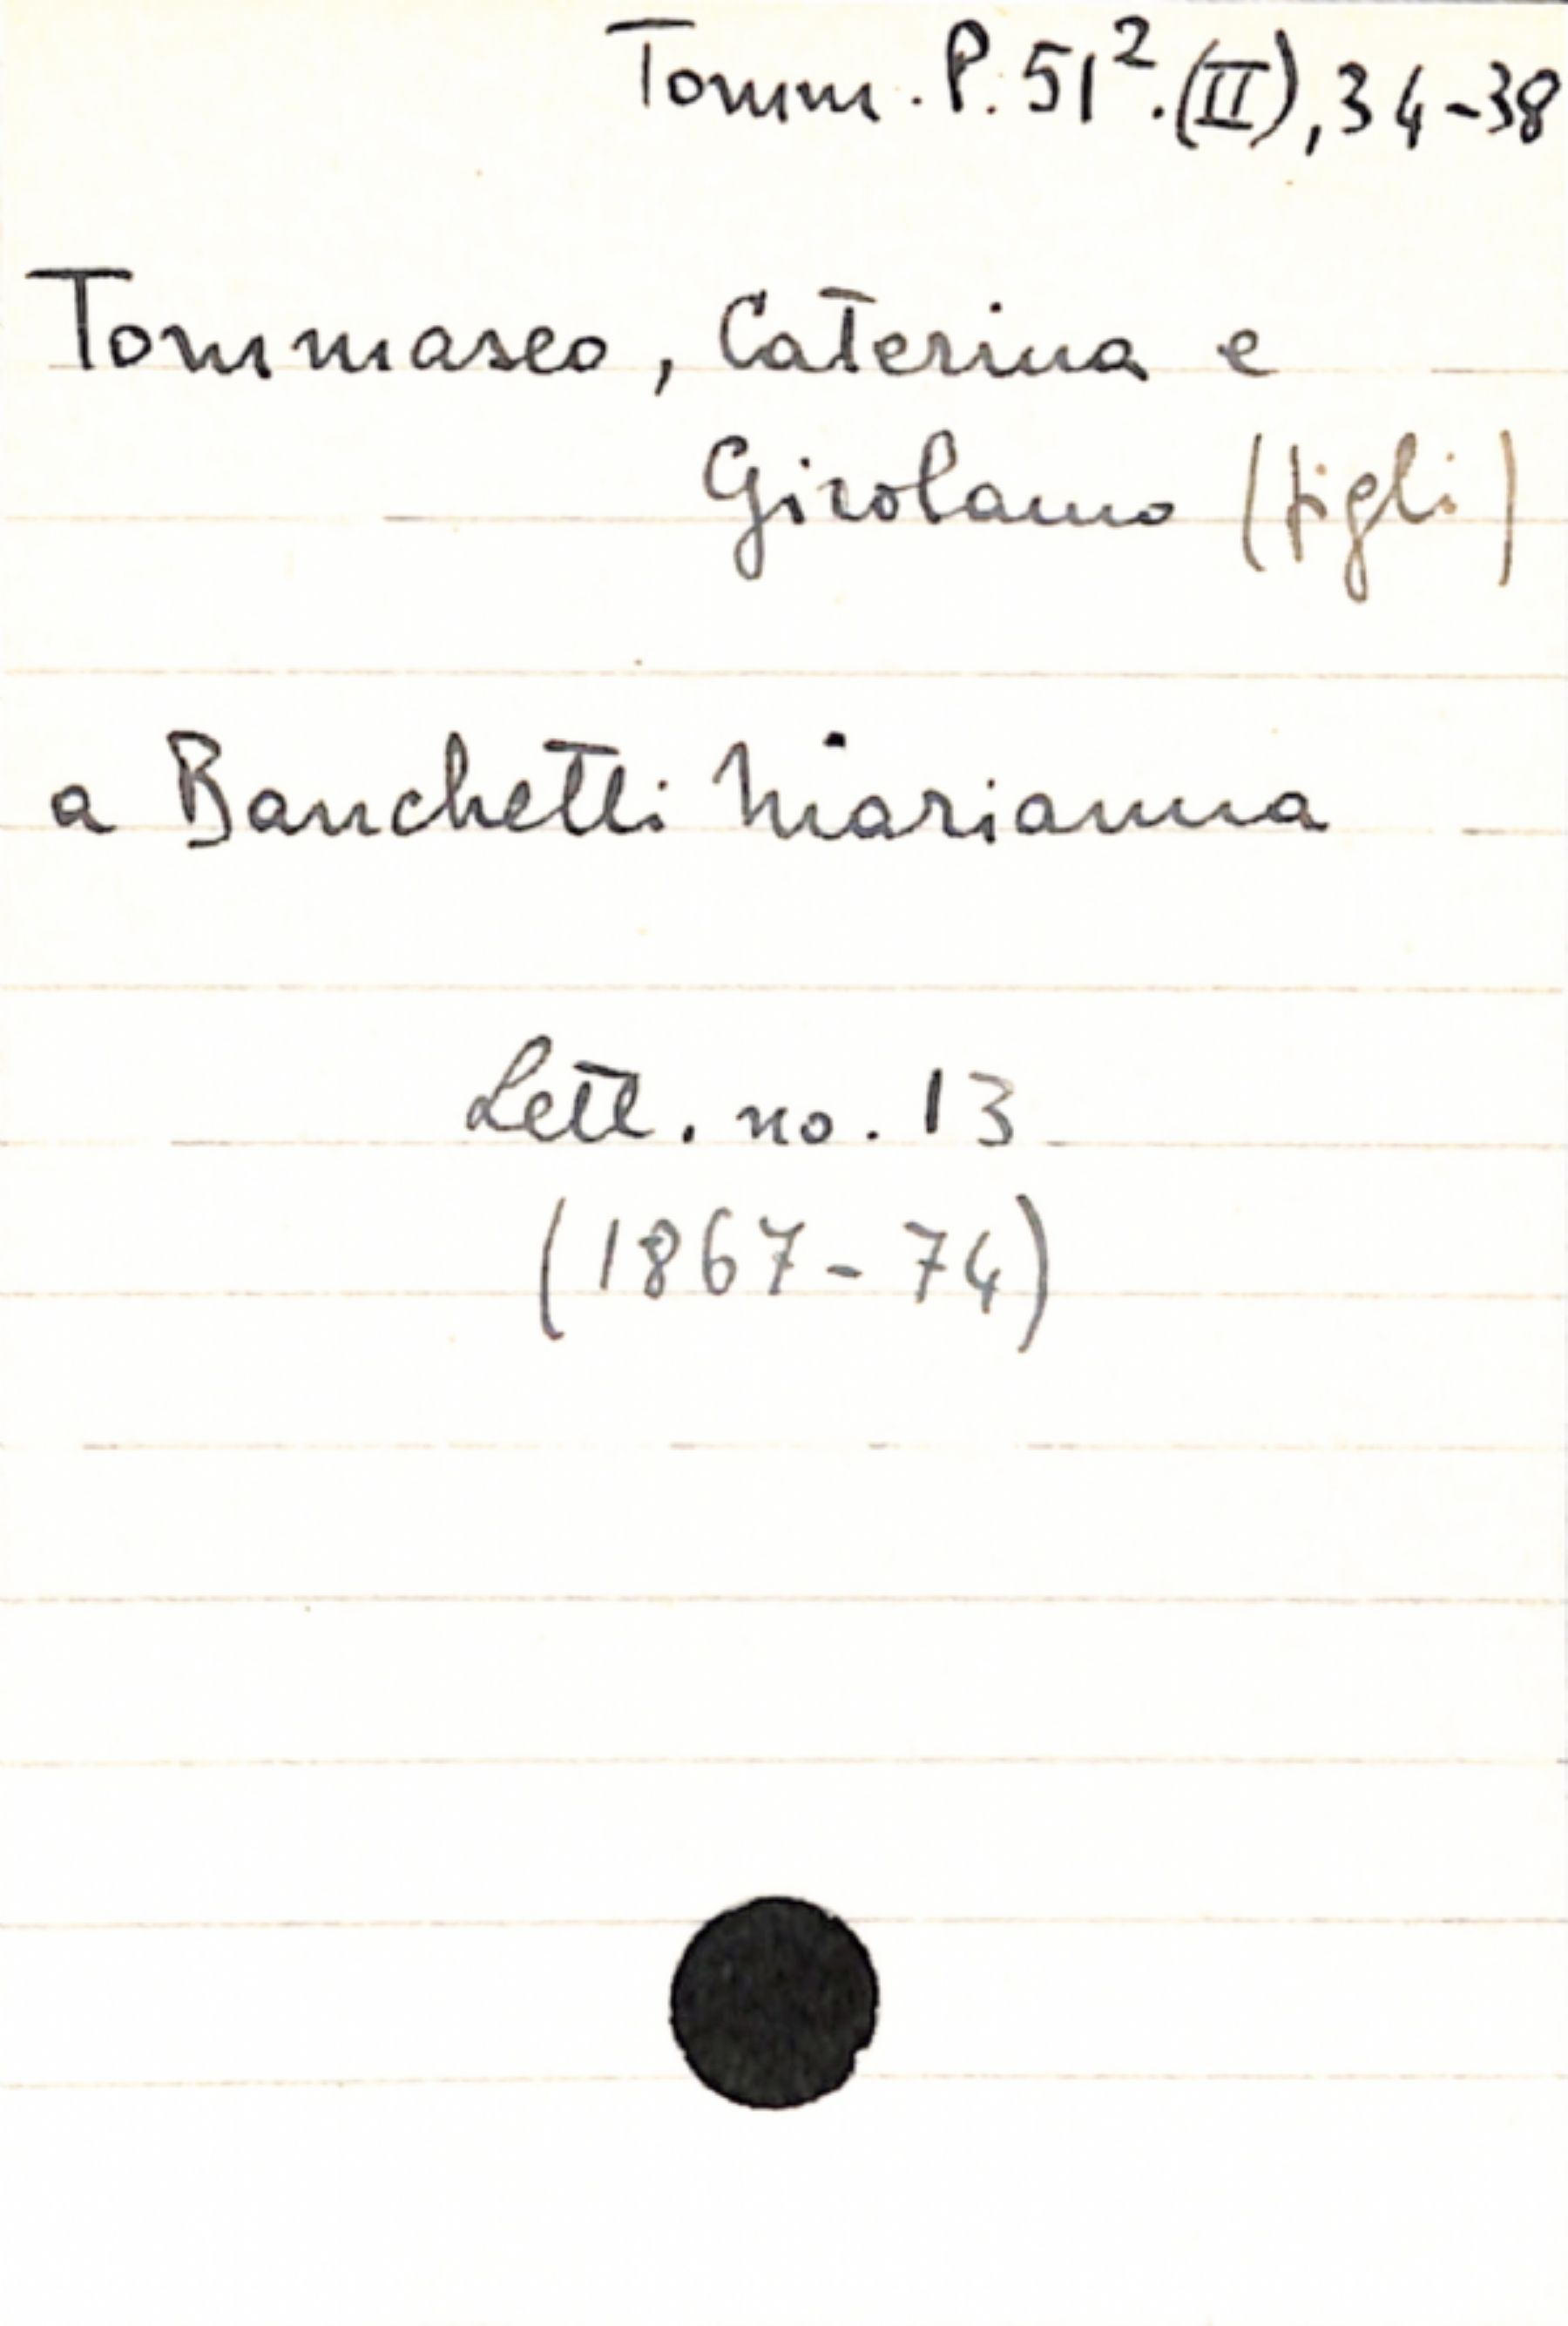 Tomm. P. 51². (II), 34-38
Tommaseo, Caterina e
Girolamo (figli)
a Banchetti Marianna
Lett. no. 13
(1867-74)